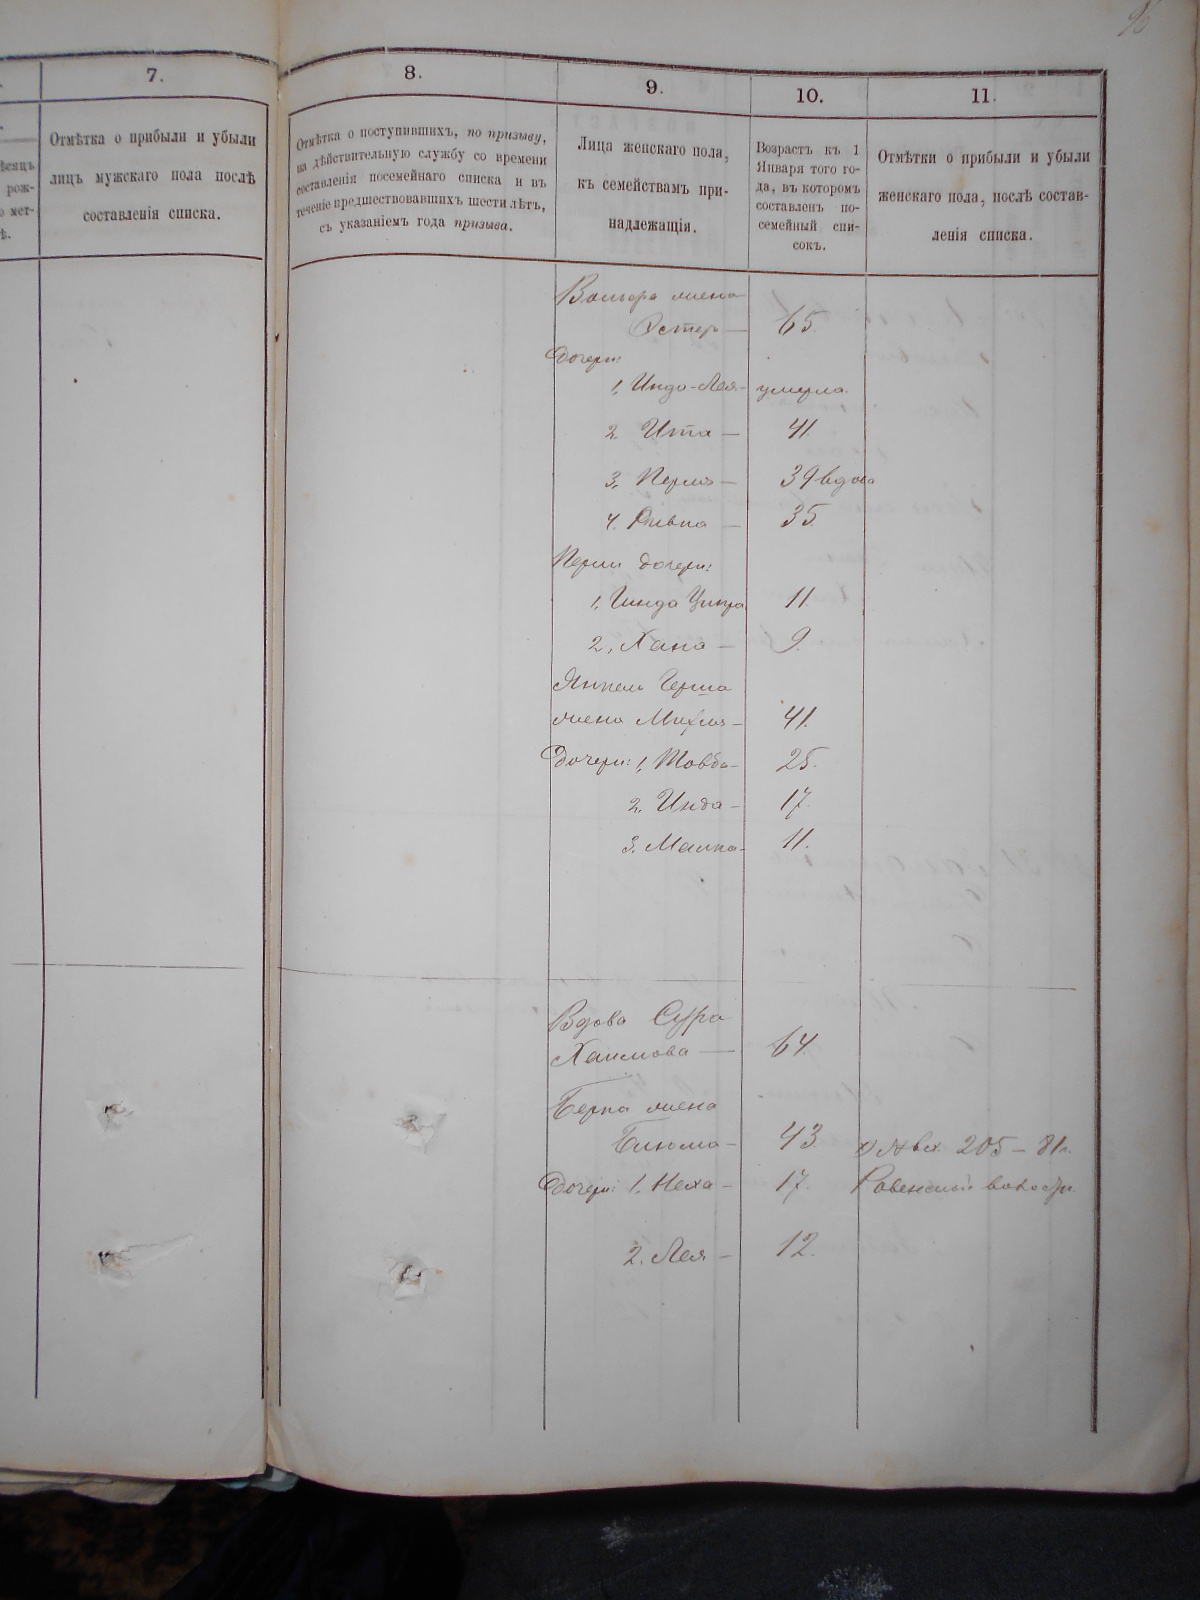 7.
Отмѣтка о прибыли и убыли
лицъ мужскаго пола послѣ
составленія списка.
8.
Отмѣтка о поступившихъ, по призыву,
на дѣйствительную службу со времени
составленія посемейнаго списка и въ
теченіе предшествовавшихъ шести лѣтъ,
съ указаніемъ года призыва.
9.
Лица женскаго пола,
къ семействамъ при-
надлежащія.
10.
Возрастъ къ 1
Января того го-
да, въ которомъ
составленъ по-
семейный спи-
сокъ.
11.
Отмѣтки о прибыли и убыли
женскаго пола, послѣ состав-
ленія списка.
жена
Эстер — 65.
Дочери:
1, Инда-Лея - умерла.
2. Ита — 41.
3, Перля — 39 вдова
4. Ривка — 35.
Перли дочери:
1, Гинда Ципра 11.
2, Хана — 9.
Янкеля Герша
жена Михля — 41.
Дочери: 1, Товба — 25.
2. Инда — 17.
3. Малка — 11.
Вдова Сура
Хаимова — 64.
Берка жена
Блюма — 43. 205 — 81г.
Дочери: 1, Неха — 17. Ровенский
2. Лея — 12.